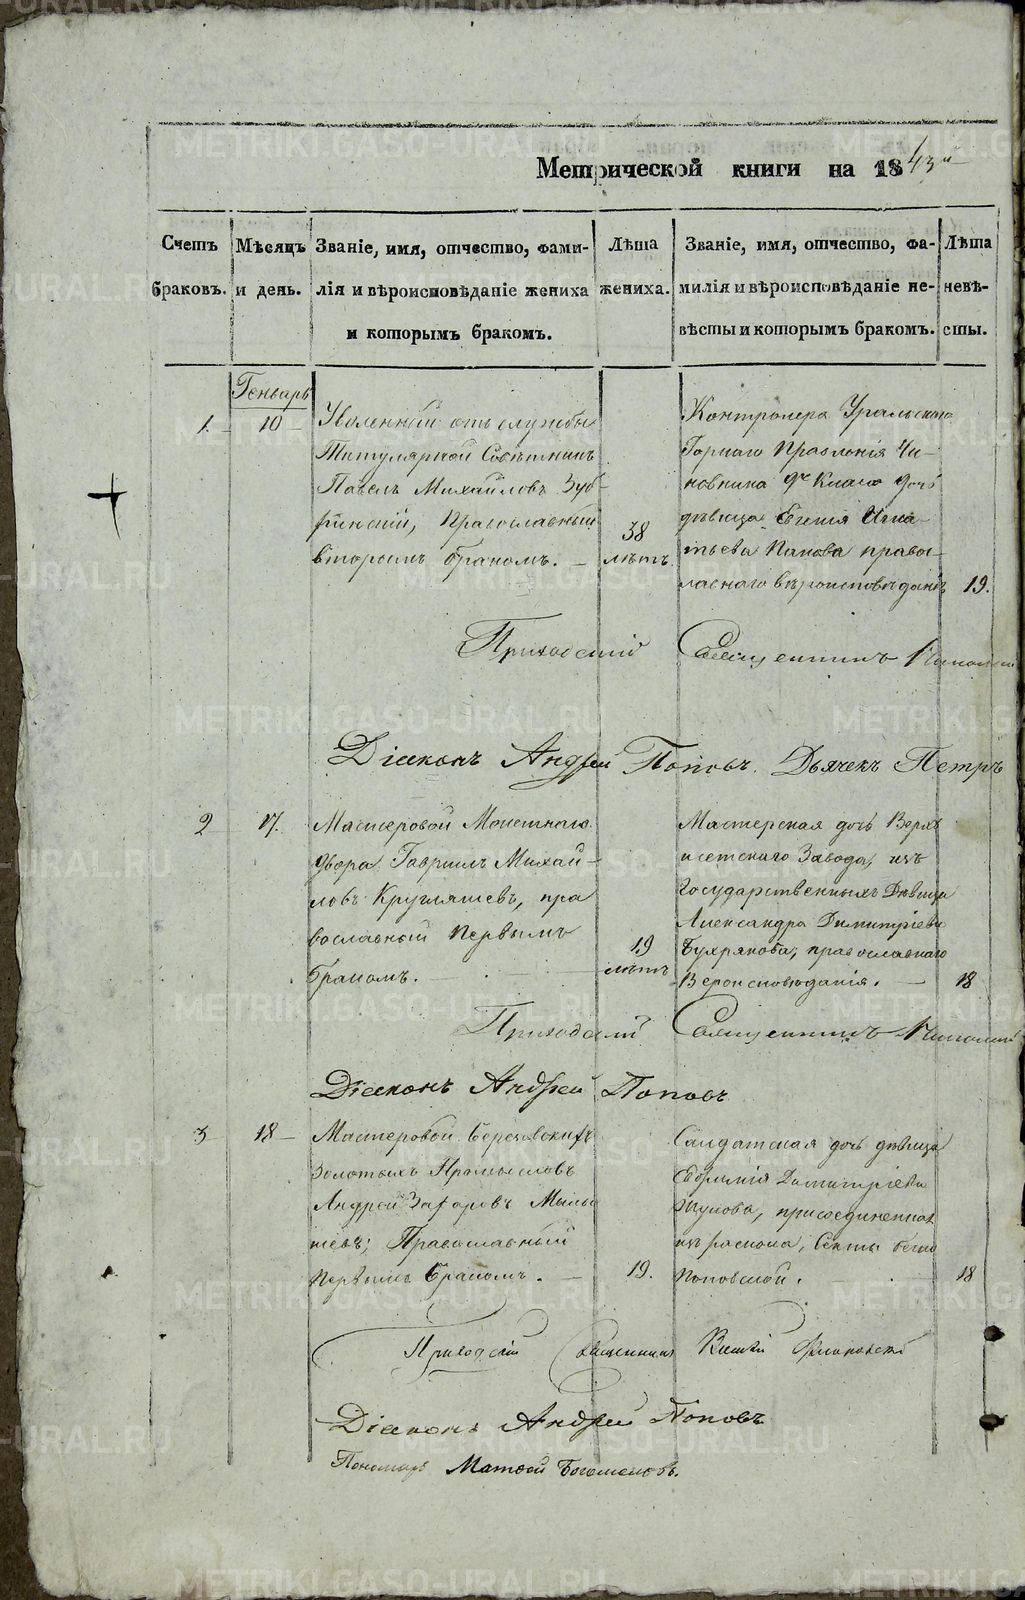 Метрической книги на 1843й
Счетъ браковъ.
Мѣсяцъ и день.
Званіе, имя, отчество, фами-
лія и вѣроисповѣданіе жениха
и которымъ бракомъ.
Лѣта
жениха.
Званіе, имя, отчество, фа-
милія и вѣроисповѣданіе не-
вѣсты и которымъ бракомъ.
Лѣта
невѣ-
сты.
Генварь
1. 10
Уволенный отъ службы
Титулярной Совѣтникъ
Павелъ Михайловъ
Православный
вторымъ бракомъ.
38
лѣтъ
Контролера Уральскаго
Горнаго Правленія Чи-
новника 9го Класа дочь
дѣвица Евгенія Игна-
тьева Попова право-
славнаго вѣроисповѣданія
19.
Приходскій Священникъ
Діаконъ Андрей Поповъ. Дьячекъ Петръ
2 17.
Мастеровой Монетнаго
двора Гавриилъ Михай-
ловъ Кругляшевъ, пра
вославный Первымъ
бракомъ.
19
лѣтъ
Мастерская дочь Верхъ
исетскаго Завода, изъ
Государственныхъ Дѣвица
Александра Димитріева
Бухрякова, православнаго
Вероисповѣданія.
18
Приходскій Священникъ
Діаконъ Андрей Поповъ
3 18
Мастеровой Березовскихъ
Золотыхъ Промысловъ
Андрей Захаровъ
Православный
Первымъ бракомъ.
19.
Солдатская дочь дѣвица
Евфимія Димитріева
присоединенная
изъ раскола, Секты бегло
Поповской.
18
Приходскій Священникъ
Діаконъ Андрей Поповъ
Пономарь Матвей Богомоловъ.
METRIKI.GASO-URAL.RU